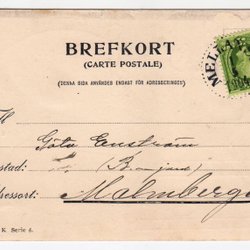 BREFKORT
(CARTE POSTALE)
(DENNA SIDA ANVÄNDES ENDAST FÖR ADRESSERINGEN)
MELLAN
Til
Göta Enström
stad:
dressort: Malmberge
K. Serie 4.